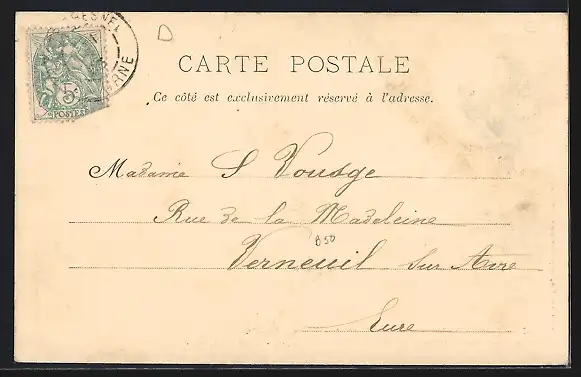 D
CARTE POSTALE
Ce côté est exclusivement réservé à l'adresse.
5c
POSTES
Madame S Vousge
Rue de la Madeleine
850
Verneuil sur Avre
Eure